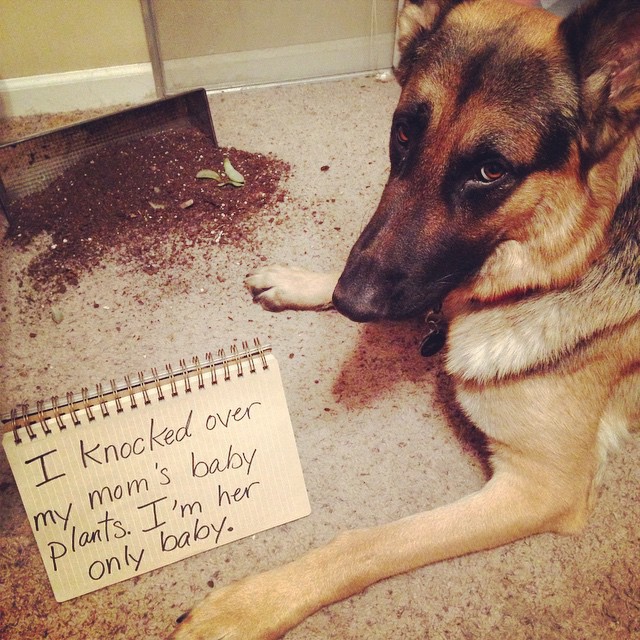 I knocked over
my mom's baby
plants. I'm her
only baby.